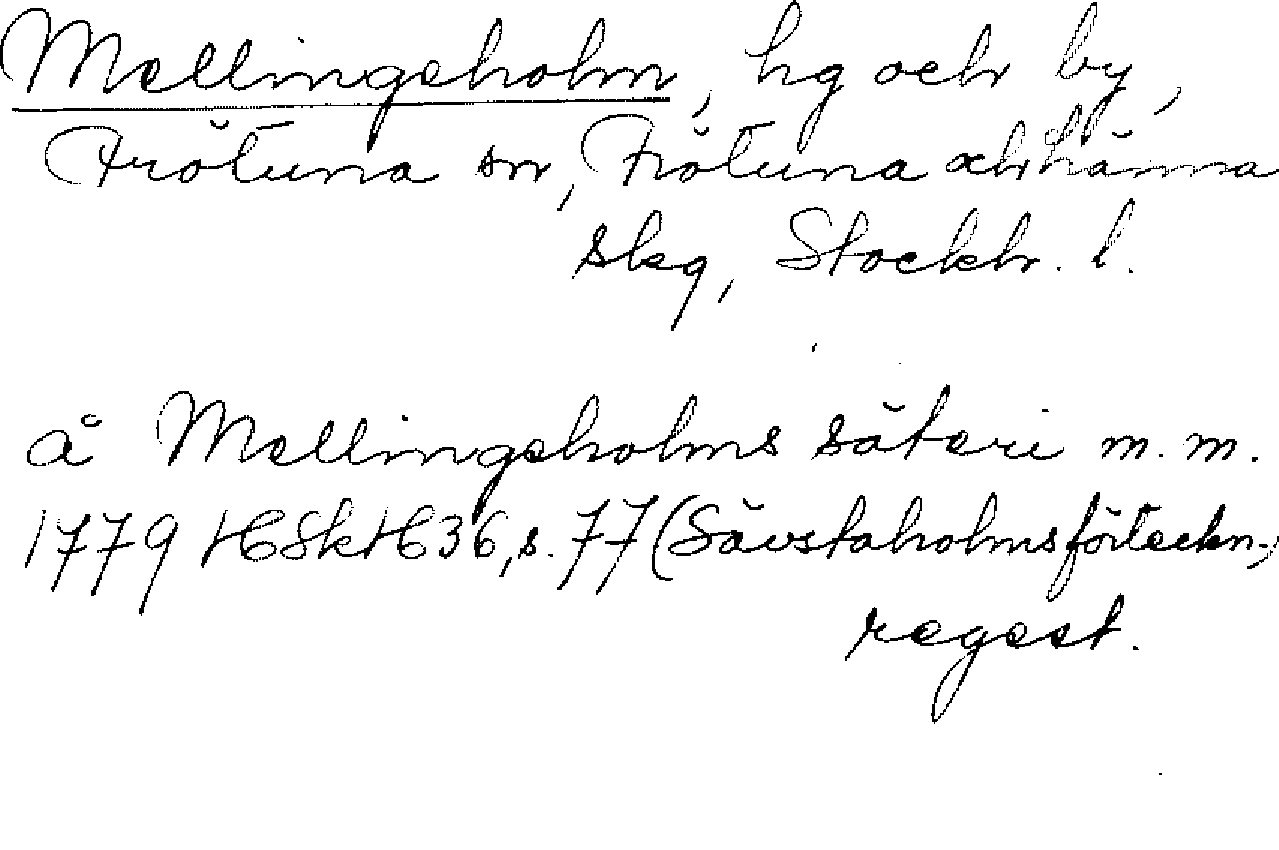 Mellingeholm, hg och by,
Frötuna sn, Frötuna och Länna
skg, Stockh. l.
å Mellingeholms säteri m.m.
1779 HSkH 36, s. 77 (Sävstaholmsförteckn.,
regest.